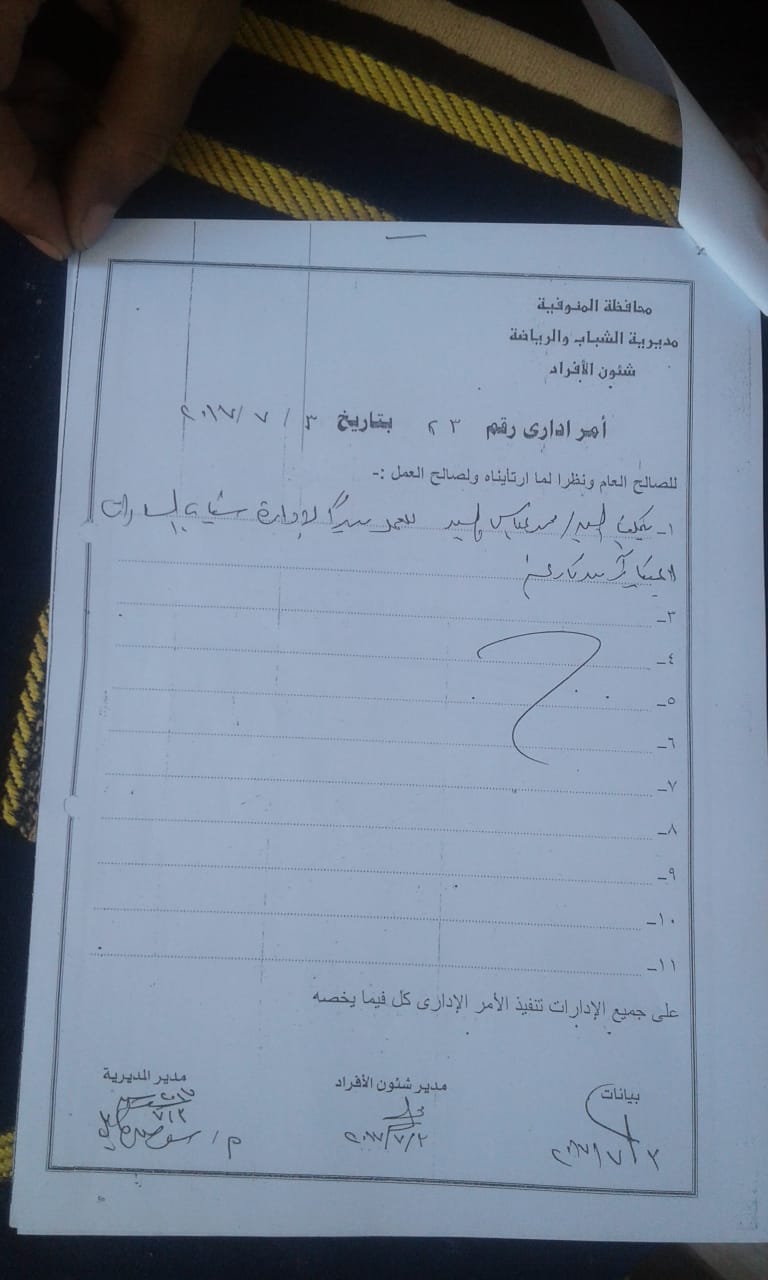 محافظة المنوفية
مديرية الشباب والرياضة
شئون الأفراد
أمر ادارى رقم ٢٣ بتاريخ ٣ / ٧ / ٢٠١٧
للصالح العام ونظرا لما ارتأيناه ولصالح العمل :-
١- يكلف السيد / محمد عباس السيد للعمل مديراً لإدارة شباب السادات
٣-
٤-
٥-
٦-
٧-
٨-
٩-
١٠-
١١-
على جميع الإدارات تنفيذ الأمر الإدارى كل فيما يخصه
بيانات
٣ / ٧ / ٢٠١٧
مدير شئون الأفراد
٢٠١٧/٧/٣
مدير المديرية
٧/٣
م /